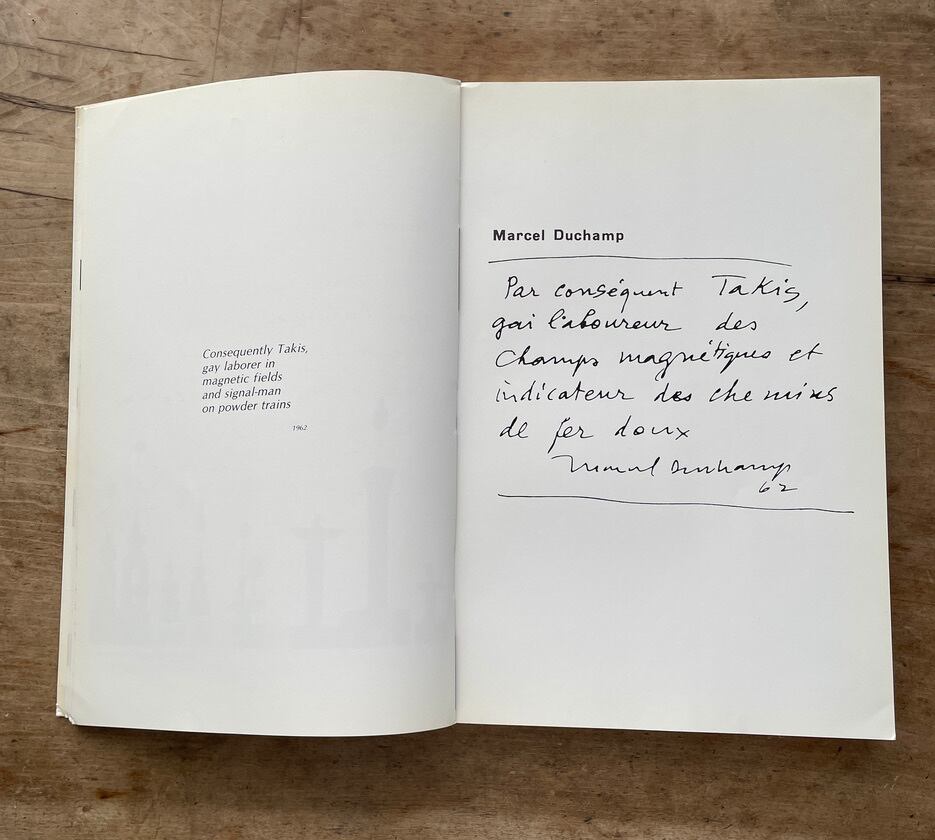 Consequently Takis,
gay laborer in
magnetic fields
and signal-man
on powder trains
1962
Marcel Duchamp
Par conséquent Takis,
gai laboureur des
champs magnétiques et
indicateur des chemins
de fer doux
Marcel Duchamp
62